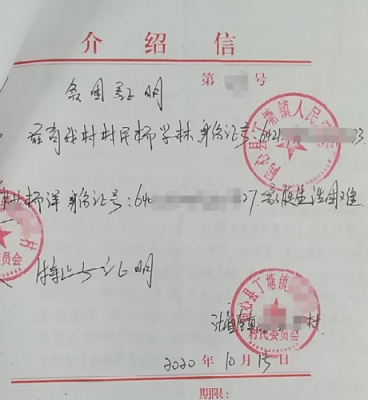 介绍信
贫困证明 第 号
兹有我村村民杨学林身份证号:642 33.
杨洋身份证号:640 27.家庭生活困难
特此证明
丁塘镇 村
2020年10月15日
期限:
同心县丁塘镇人民
村民委员会
同心县丁塘镇
村民委员会